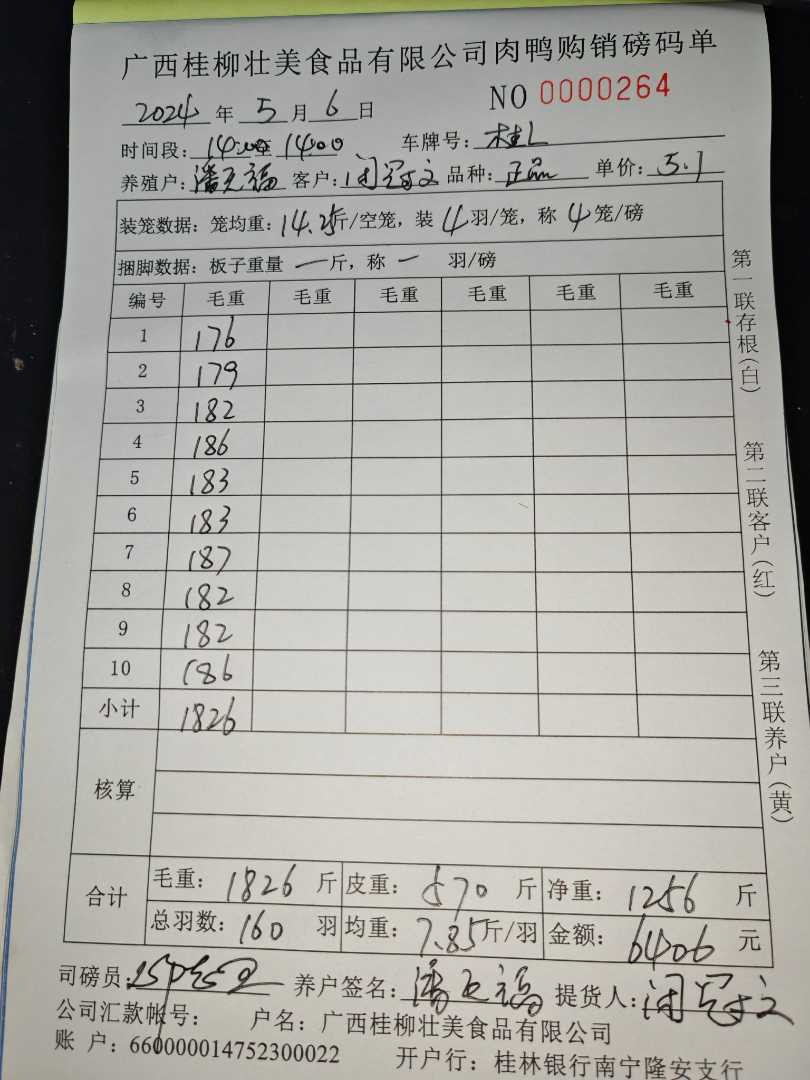 广西桂柳壮美食品有限公司肉鸭购销磅码单
2024 年 5 月 6 日 NO 0000264
时间段: 14:00 至 14:00 车牌号: 桂L
养殖户: 潘 福 客户: 闭冠文 品种: 正品 单价: 5.1
装笼数据: 笼均重: 14.25斤/空笼, 装 4 羽/笼, 称 4 笼/磅
捆脚数据: 板子重量 一 斤, 称 一 羽/磅
编号 毛重 毛重 毛重 毛重 毛重 毛重
1 176
2 179
3 182
4 186
5 183
6 183
7 187
8 182
9 182
10 186
小计 1826
核算
合计 毛重: 1826 斤 皮重: 570 斤 净重: 1256 斤
总羽数: 160 羽 均重: 7.85斤/羽 金额: 6406 元
司磅员: 养户签名: 潘 福 提货人: 闭冠文
公司汇款帐号: 户名: 广西桂柳壮美食品有限公司
账 户: 660000014752300022 开户行: 桂林银行南宁隆安支行
第一联存根(白)
第二联客户(红)
第三联养户(黄)